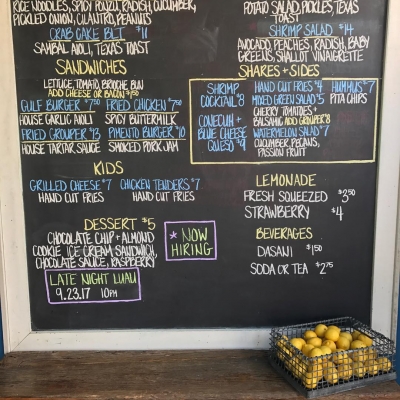 RICE NOODLES, SPICY PONZU, RADISH, CUCUMBER,
PICKLED ONION, CILANTRO, PEANUTS
CRAB CAKE BLT $11
SAMBAL AIOLI, TEXAS TOAST
SANDWICHES
LETTUCE, TOMATO, BRIOCHE BUN
ADD CHEESE OR BACON
GULF BURGER $7.50 FRIED CHICKEN $7.50
HOUSE GARLIC AIOLI SPICY BUTTERMILK
FRIED GROUPER $13 PIMENTO BURGER $10
HOUSE TARTAR SAUCE SMOKED PORK JAM
KIDS
GRILLED CHEESE $7 CHICKEN TENDERS $7
HAND CUT FRIES HAND CUT FRIES
DESSERT $5
CHOCOLATE CHIP + ALMOND
COOKIE ICE CREAM SANDWICH,
CHOCOLATE SAUCE, RASPBERRY
* NOW
HIRING
LATE NIGHT LUAU
9.23.17 10PM
POTATO SALAD, PICKLES, TEXAS
TOAST
SHRIMP SALAD $14
AVOCADO, PEACHES, RADISH, BABY
GREENS, SHALLOT VINAIGRETTE
SHARES + SIDES
SHRIMP
COCKTAIL $8
CONECUH +
BLUE CHEESE
QUESO $9
HAND CUT FRIES $4
MIXED GREEN SALAD $5
CHERRY TOMATOES +
BALSAMIC ADD GROUPER $8
WATERMELON SALAD $7
CUCUMBER, PECANS,
PASSION FRUIT
HUMMUS $7
PITA CHIPS
LEMONADE
FRESH SQUEEZED $3.50
STRAWBERRY $4
BEVERAGES
DASANI $1.50
SODA OR TEA $2.75